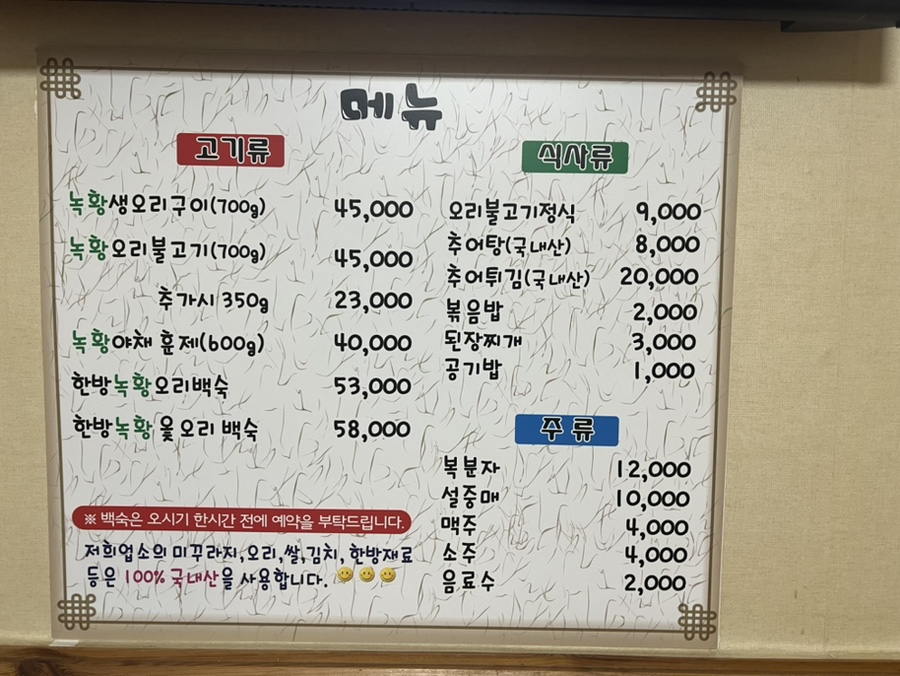 메뉴
고기류
녹황생오리구이(700g) 45,000
녹황오리불고기(700g) 45,000
추가시 350g 23,000
녹황야채 훈제(600g) 40,000
한방녹황오리백숙 53,000
한방녹황 옻오리 백숙 58,000
※ 백숙은 오시기 한시간 전에 예약을 부탁드립니다.
저희업소의 미꾸라지,오리,쌀,김치, 한방재료
등은 100% 국내산을 사용합니다.
식사류
오리불고기정식 9,000
추어탕(국내산) 8,000
추어튀김(국내산) 20,000
볶음밥 2,000
된장찌개 3,000
공기밥 1,000
주 류
복분자 12,000
설중매 10,000
맥주 4,000
소주 4,000
음료수 2,000